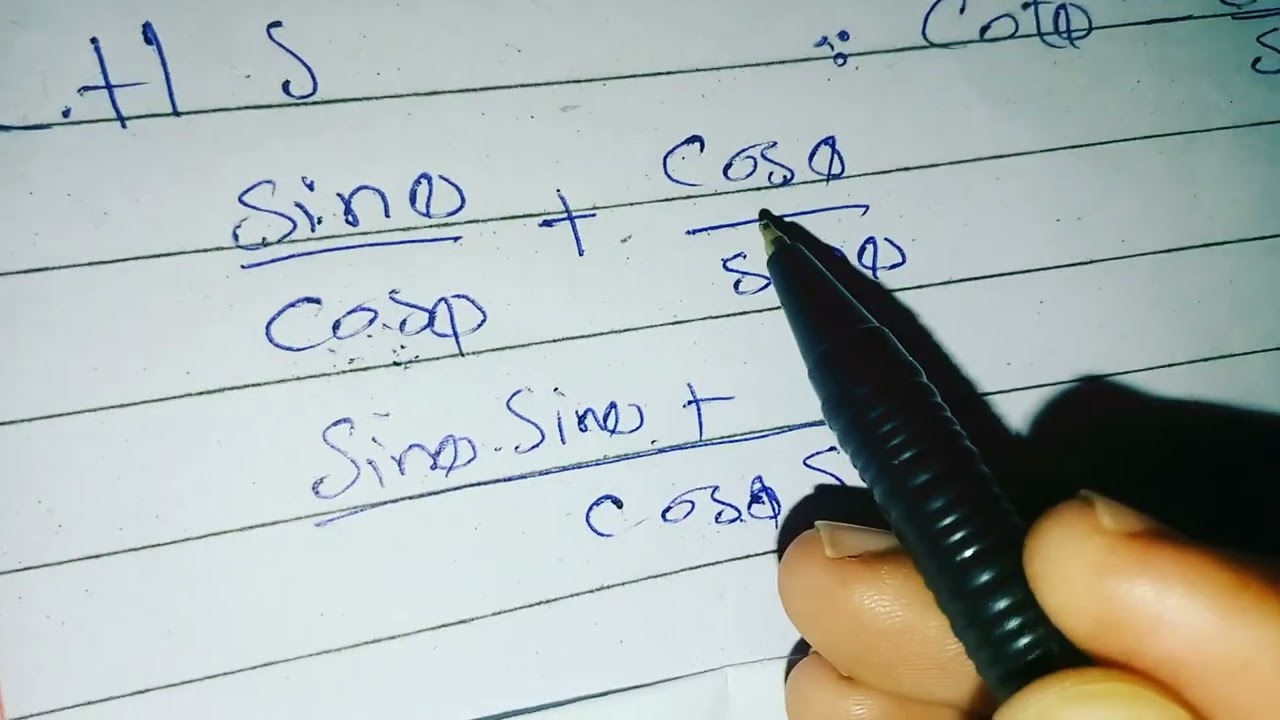 .H S ∴ Cotθ
sinθ + cosθ
cosθ
sinθ.sinθ +
cosθ s